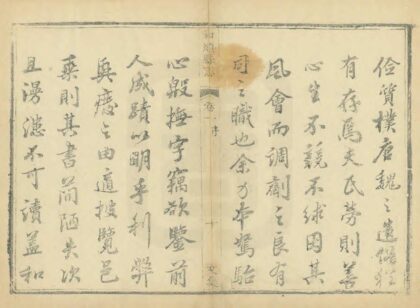 俭質樸唐魏之遺猶
有存焉夫民勞則善
心生不競不絿因其
風會而調劑之良有
司之職也余乃本駑駘
心殷撫字竊欲鑒前
人成蹟以明乎利弊
興廢之由適披覽邑
乘則其書簡陋失次
且漫漶不可讀蓋和